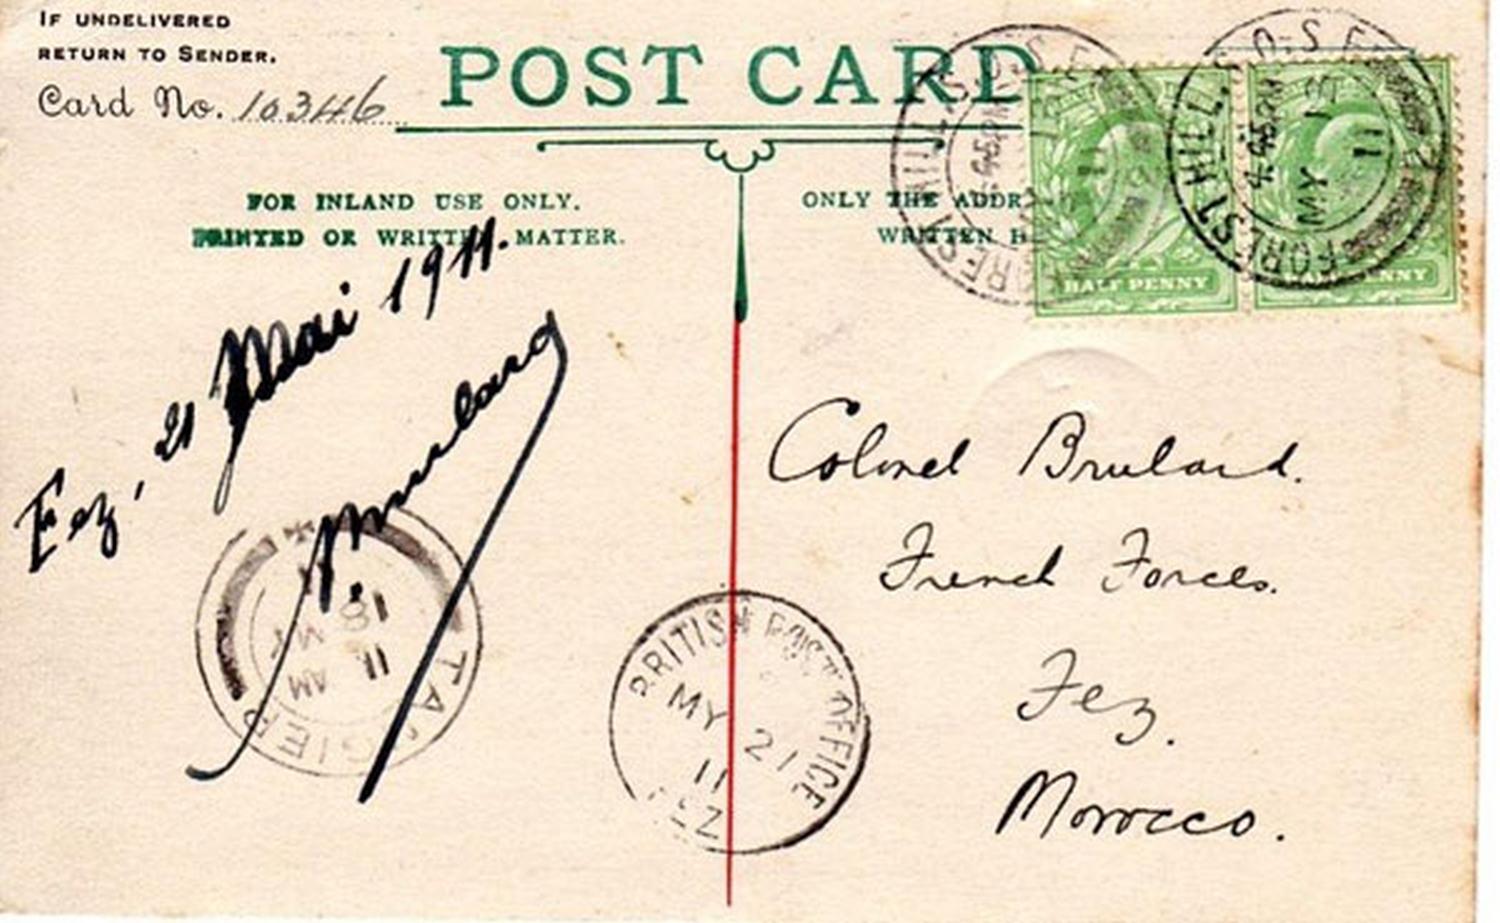 IF UNDELIVERED
RETURN TO SENDER.
Card No. 10346
POST CARD
FOR INLAND USE ONLY.
PRINTED OR WRITTEN MATTER.
ONLY THE ADDR
WRITTEN HE
FOREST HILL. S.O. S.E.
4.45PM
11
HALF PENNY
FOREST HILL. S.O. S.E.
4.45PM
MY 13
11
HALF PENNY
Fez, 21 Mai 1911.
Brulard
Colonel Brulard.
French Forces.
Fez.
Morocco.
TANGIER
AM
MY 18
11
BRITISH POST OFFICE
MY 21
11
FEZ